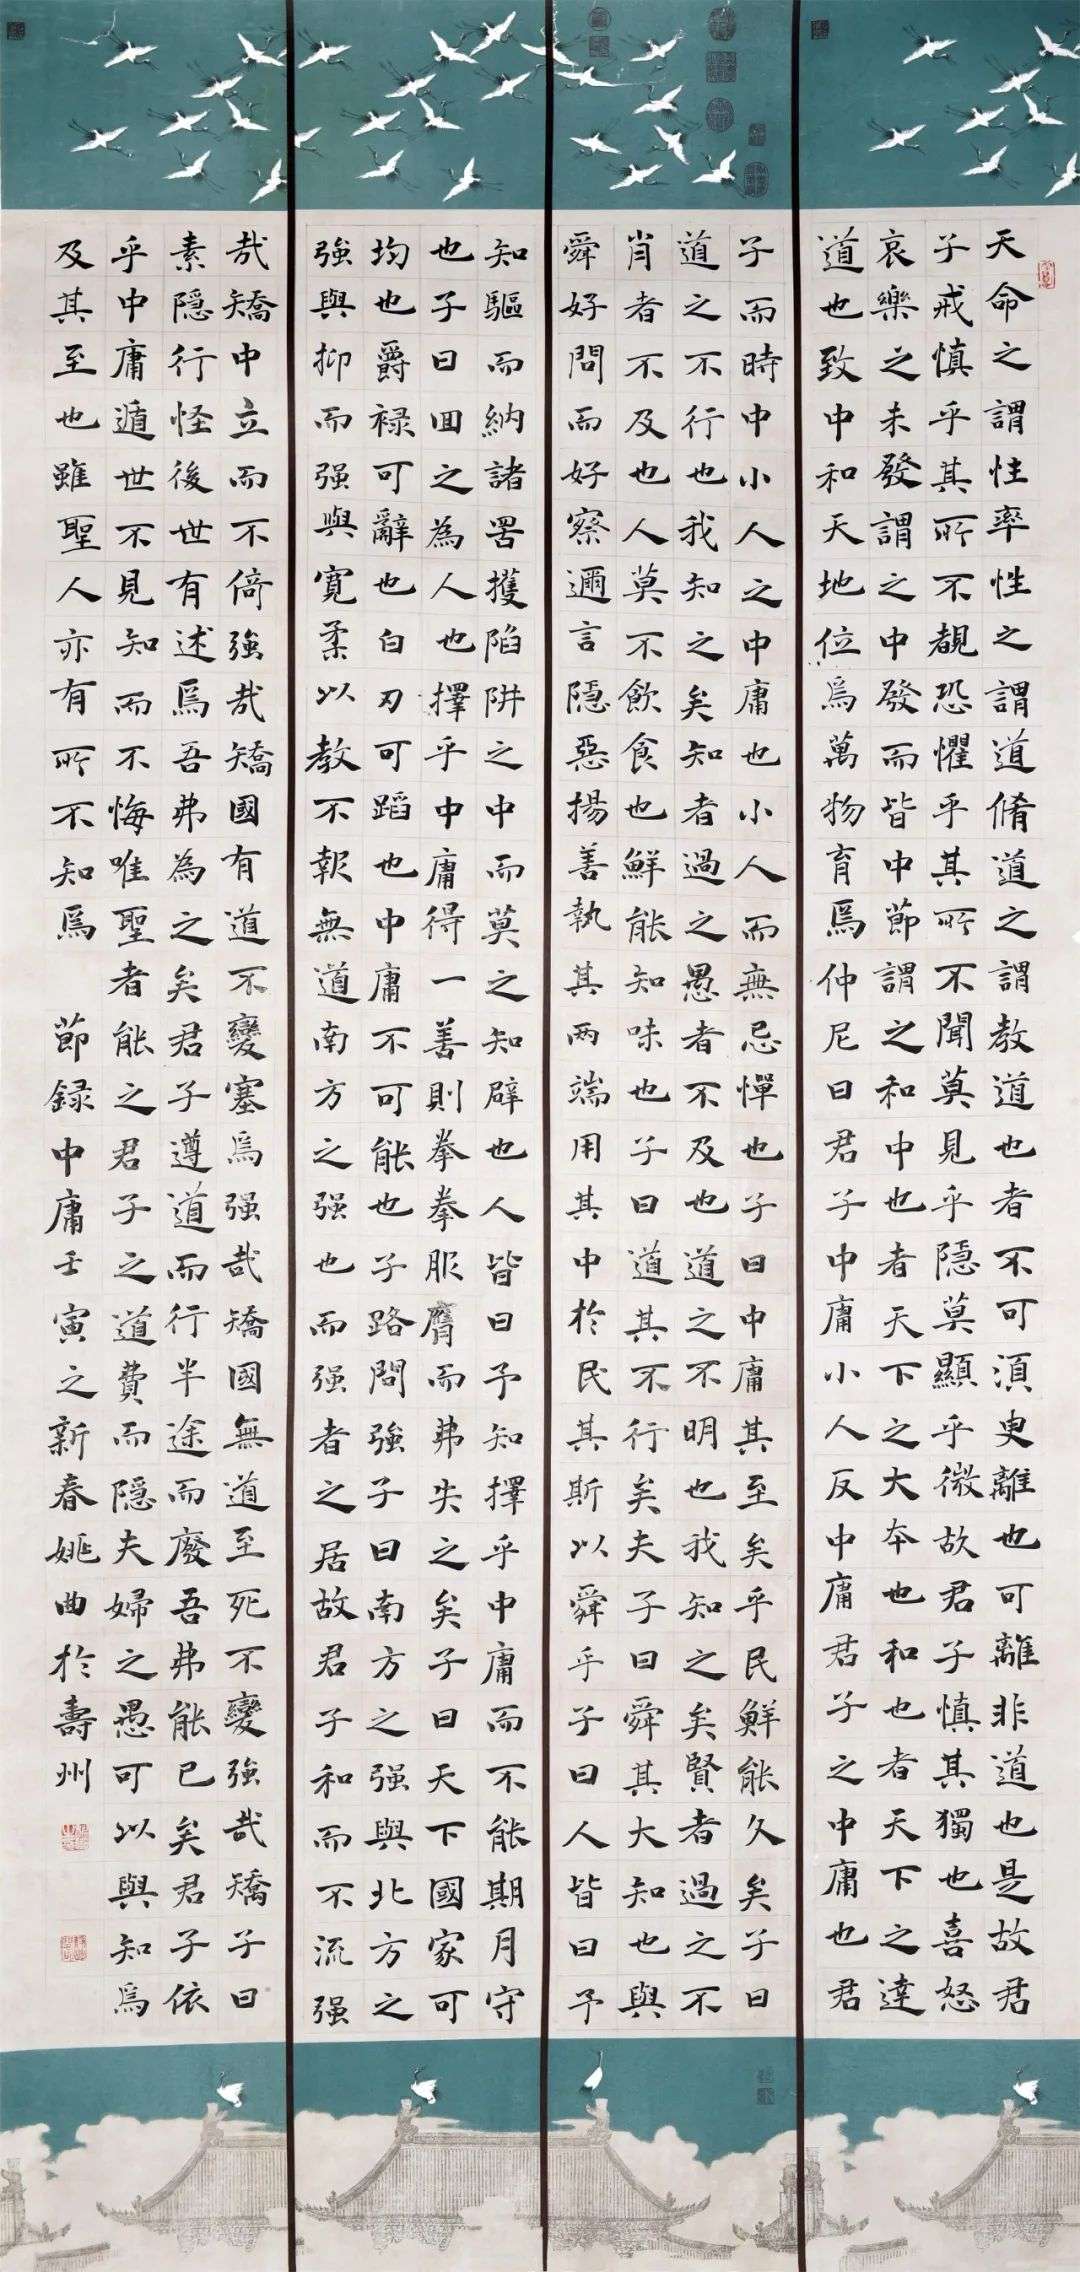 天命之謂性率性之謂道脩道之謂教道也者不可須臾離也可離非道也是故君
子戒慎乎其所不覩恐懼乎其所不聞莫見乎隱莫顯乎微故君子慎其獨也喜怒
哀樂之未發謂之中發而皆中節謂之和中也者天下之大本也和也者天下之達
道也致中和天地位焉萬物育焉仲尼曰君子中庸小人反中庸君子之中庸也君
子而時中小人之中庸也小人而無忌憚也子曰中庸其至矣乎民鮮能久矣子曰
道之不行也我知之矣知者過之愚者不及也道之不明也我知之矣賢者過之不
肖者不及也人莫不飲食也鮮能知味也子曰道其不行矣夫子曰舜其大知也與
舜好問而好察邇言隱惡揚善執其兩端用其中於民其斯以舜乎子曰人皆曰予
知驅而納諸罟擭陷阱之中而莫之知辟也人皆曰予知擇乎中庸而不能期月守
也子曰回之為人也擇乎中庸得一善則拳拳服膺而弗失之矣子曰天下國家可
均也爵祿可辭也白刃可蹈也中庸不可能也子路問強子曰南方之强與北方之
強與抑而强與寬柔以教不報無道南方之强也而强者之居故君子和而不流强
哉矯中立而不倚強哉矯國有道不變塞焉强哉矯國無道至死不變強哉矯子曰
素隱行怪後世有述焉吾弗為之矣君子遵道而行半途而廢吾弗能已矣君子依
乎中庸遁世不見知而不悔唯聖者能之君子之道費而隱夫婦之愚可以與知焉
及其至也雖聖人亦有所不知焉 節録中庸壬寅之新春姚曲於壽州